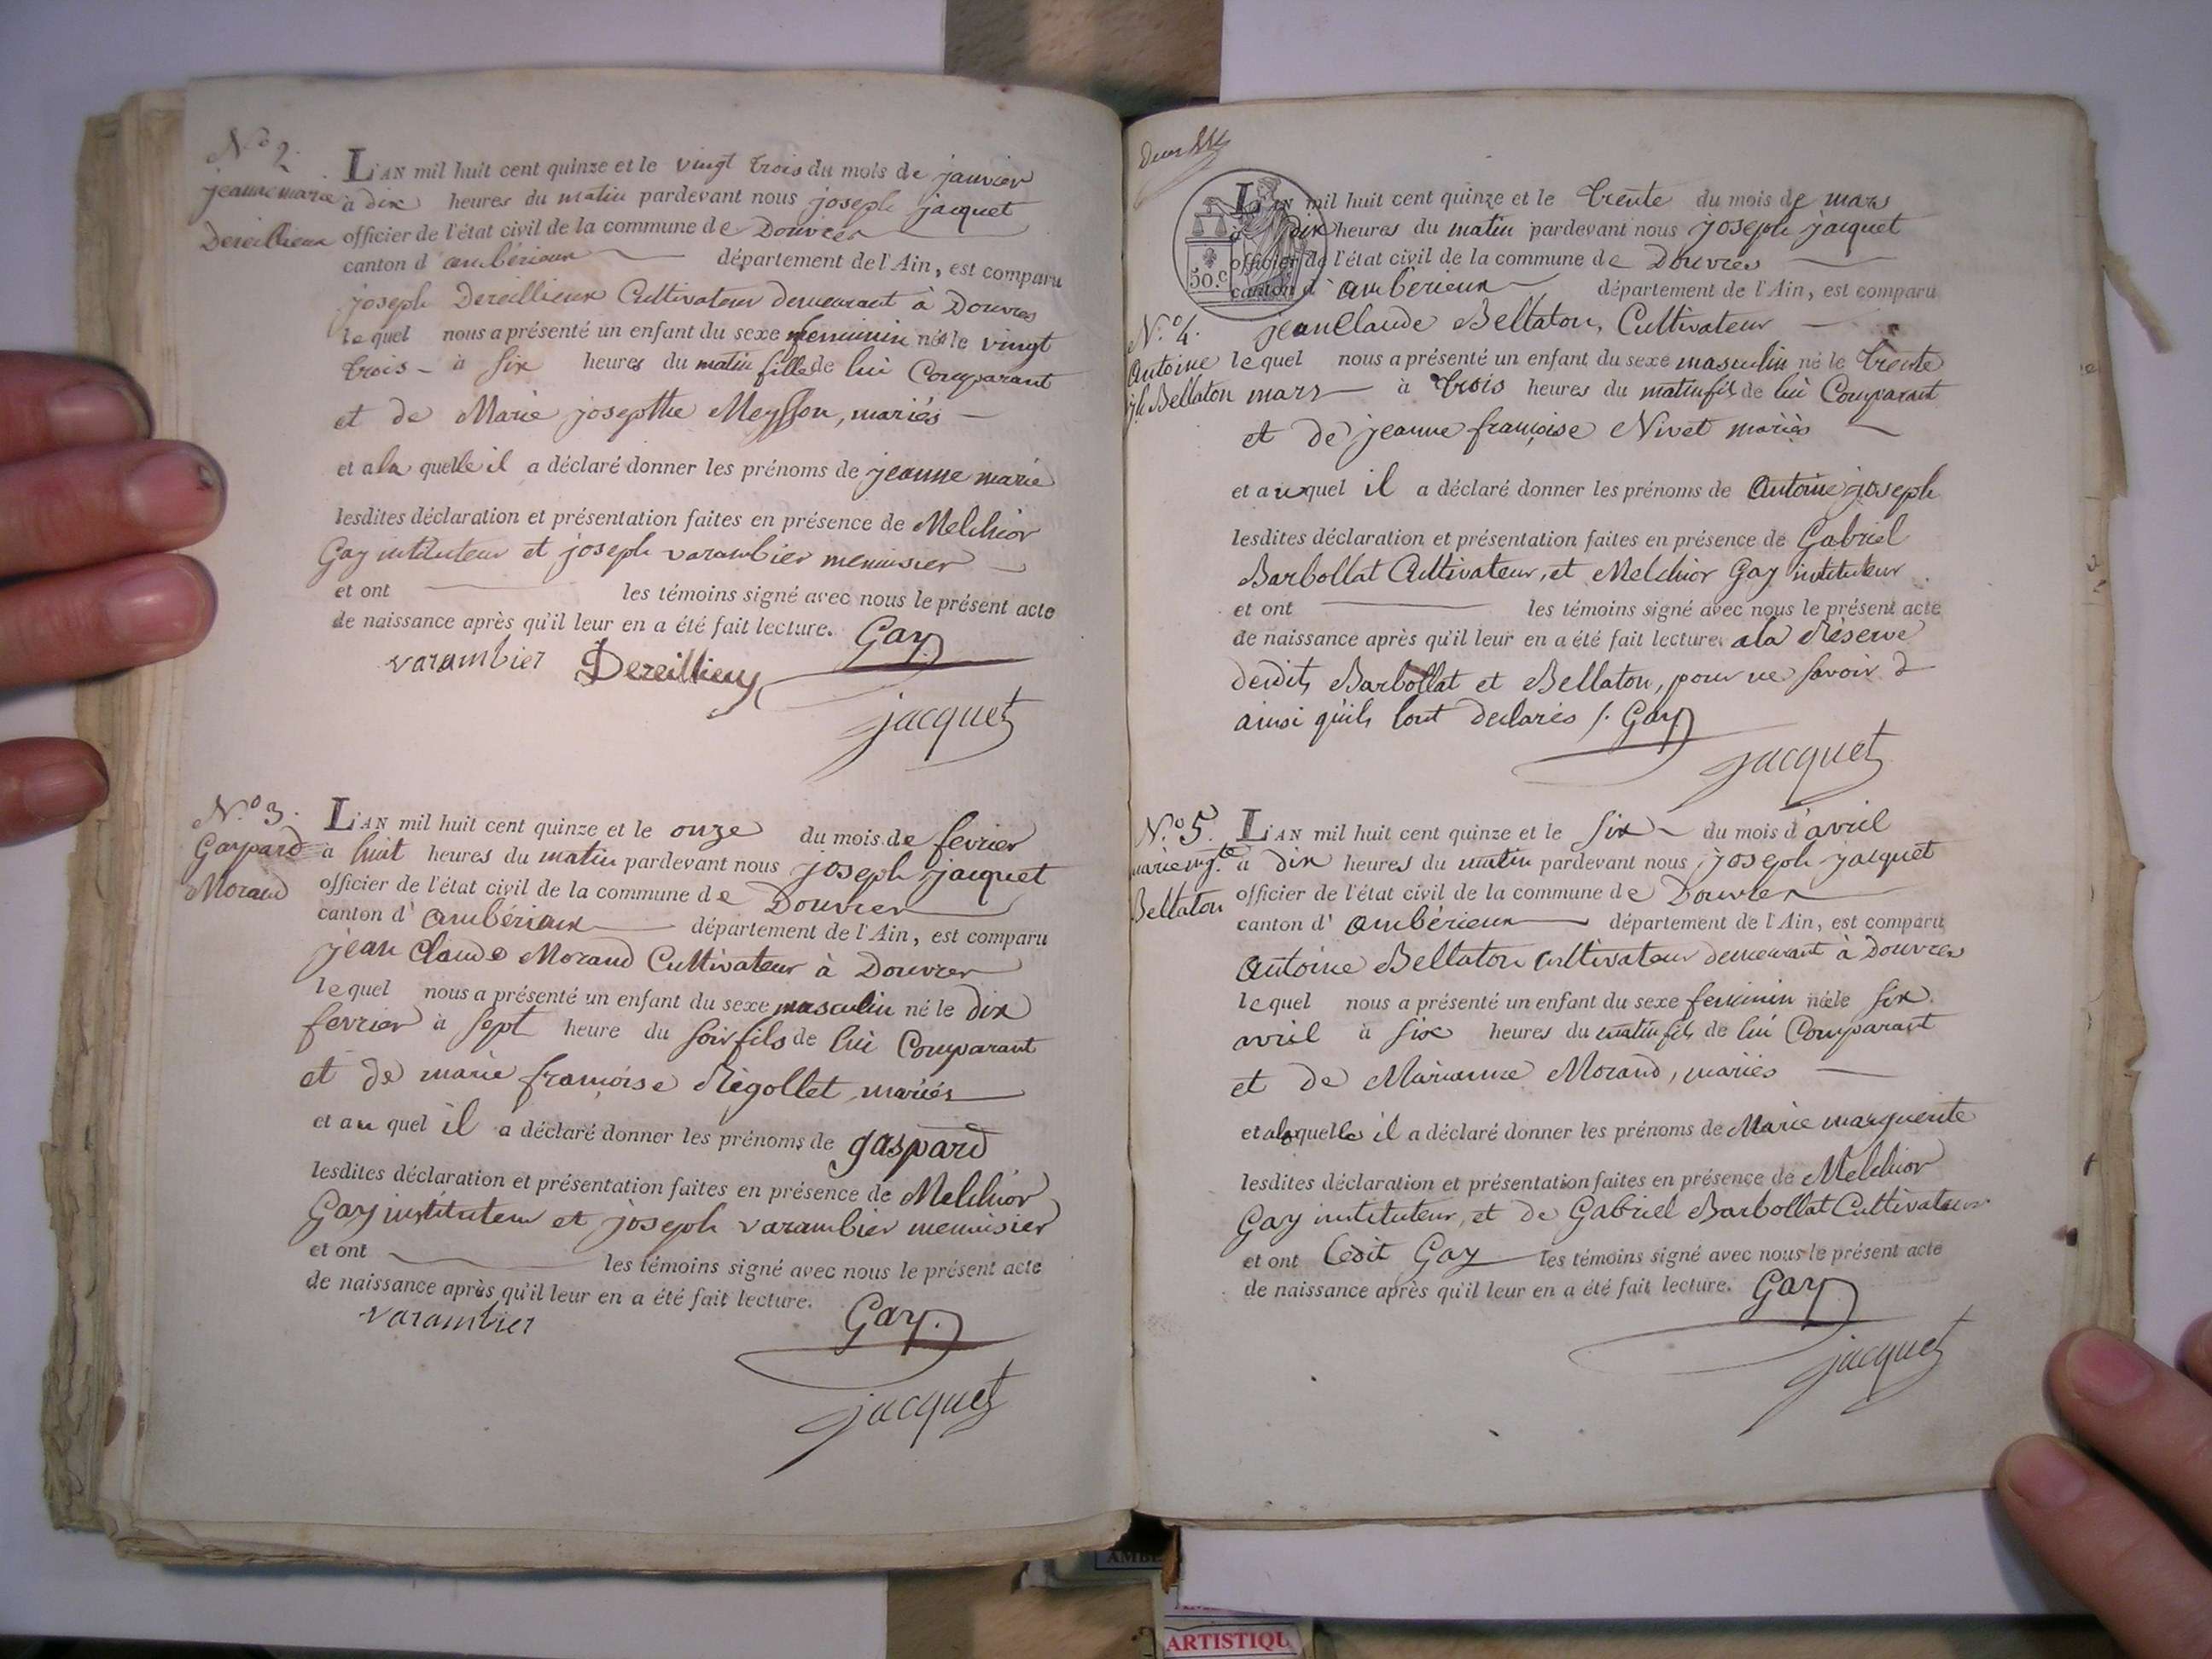 N.o 2.
jeanne marie
Dereillieux
L'AN mil huit cent quinze et le vingt trois du mois de janvier
à dix heures du matin pardevant nous joseph jacquet
officier de l'état civil de la commune de Douvres
canton d'ambérieux département de l'Ain, est comparu
joseph Dereillieux Cultivateur demeurant à Douvres
lequel nous a présenté un enfant du sexe feminin née le vingt
trois à six heures du matin fille de lui Comparant
et de Marie josepthe Meysson, mariés
et a la quelle il a déclaré donner les prénoms de jeanne marie
lesdites déclaration et présentation faites en présence de Melchior
Gay instituteur et joseph varambier menuisier
et ont les témoins signé avec nous le présent acte
de naissance après qu'il leur en a été fait lecture. Gay
varambier Dereillieux
jacquet
N.o 3.
Gaspard
Morand
L'AN mil huit cent quinze et le onze du mois de fevrier
à huit heures du matin pardevant nous joseph jacquet
officier de l'état civil de la commune de Douvres
canton d'ambérieux département de l'Ain, est comparu
jean Claude Morand Cultivateur à Douvres
lequel nous a présenté un enfant du sexe masculin né le dix
fevrier à sept heure du soir fils de lui Comparant
et de marie françoise Rigollet mariés
et au quel il a déclaré donner les prénoms de gaspard
lesdites déclaration et présentation faites en présence de Melchior
Gay instituteur et joseph varambier menuisier
et ont les témoins signé avec nous le présent acte
de naissance après qu'il leur en a été fait lecture.
varambier Gay.
jacquet
50.c
L'AN mil huit cent quinze et le trente du mois de mars
à dix heures du matin pardevant nous joseph jacquet
officier de l'état civil de la commune de Douvres
canton d'ambérieux département de l'Ain, est comparu
N.o 4.
Antoine
jh Bellaton
jean Claude Bellaton, Cultivateur
lequel nous a présenté un enfant du sexe masculin né le trente
mars à trois heures du matin fils de lui Comparant
et de jeanne françoise Nivet mariés
et auquel il a déclaré donner les prénoms de Antoine joseph
lesdites déclaration et présentation faites en présence de Gabriel
Barbollat Cultivateur, et Melchior Gay instituteur
et ont les témoins signé avec nous le présent acte
de naissance après qu'il leur en a été fait lecture. a la Réserve
desdits Barbollat et Bellaton, pour ne savoir
ainsi qu'ils l'ont declarés /. Gay
jacquet
N.o 5.
marie mgte
Bellaton
L'AN mil huit cent quinze et le six du mois d'avril
à dix heures du matin pardevant nous joseph jacquet
officier de l'état civil de la commune de Douvres
canton d'ambérieux département de l'Ain, est comparu
Antoine Bellaton cultivateur demeurant à Douvres
lequel nous a présenté un enfant du sexe feminin née le six
avril à six heures du matin fils de lui Comparant
et de Marianne Morand, mariés
et a laquelle il a déclaré donner les prénoms de Marie marguerite
lesdites déclaration et présentation faites en présence de Melchior
Gay instituteur, et de Gabriel Barbollat Cultivateur
et ont ledit Gay les témoins signé avec nous le présent acte
de naissance après qu'il leur en a été fait lecture. Gay
jacquet
ARTISTIQU